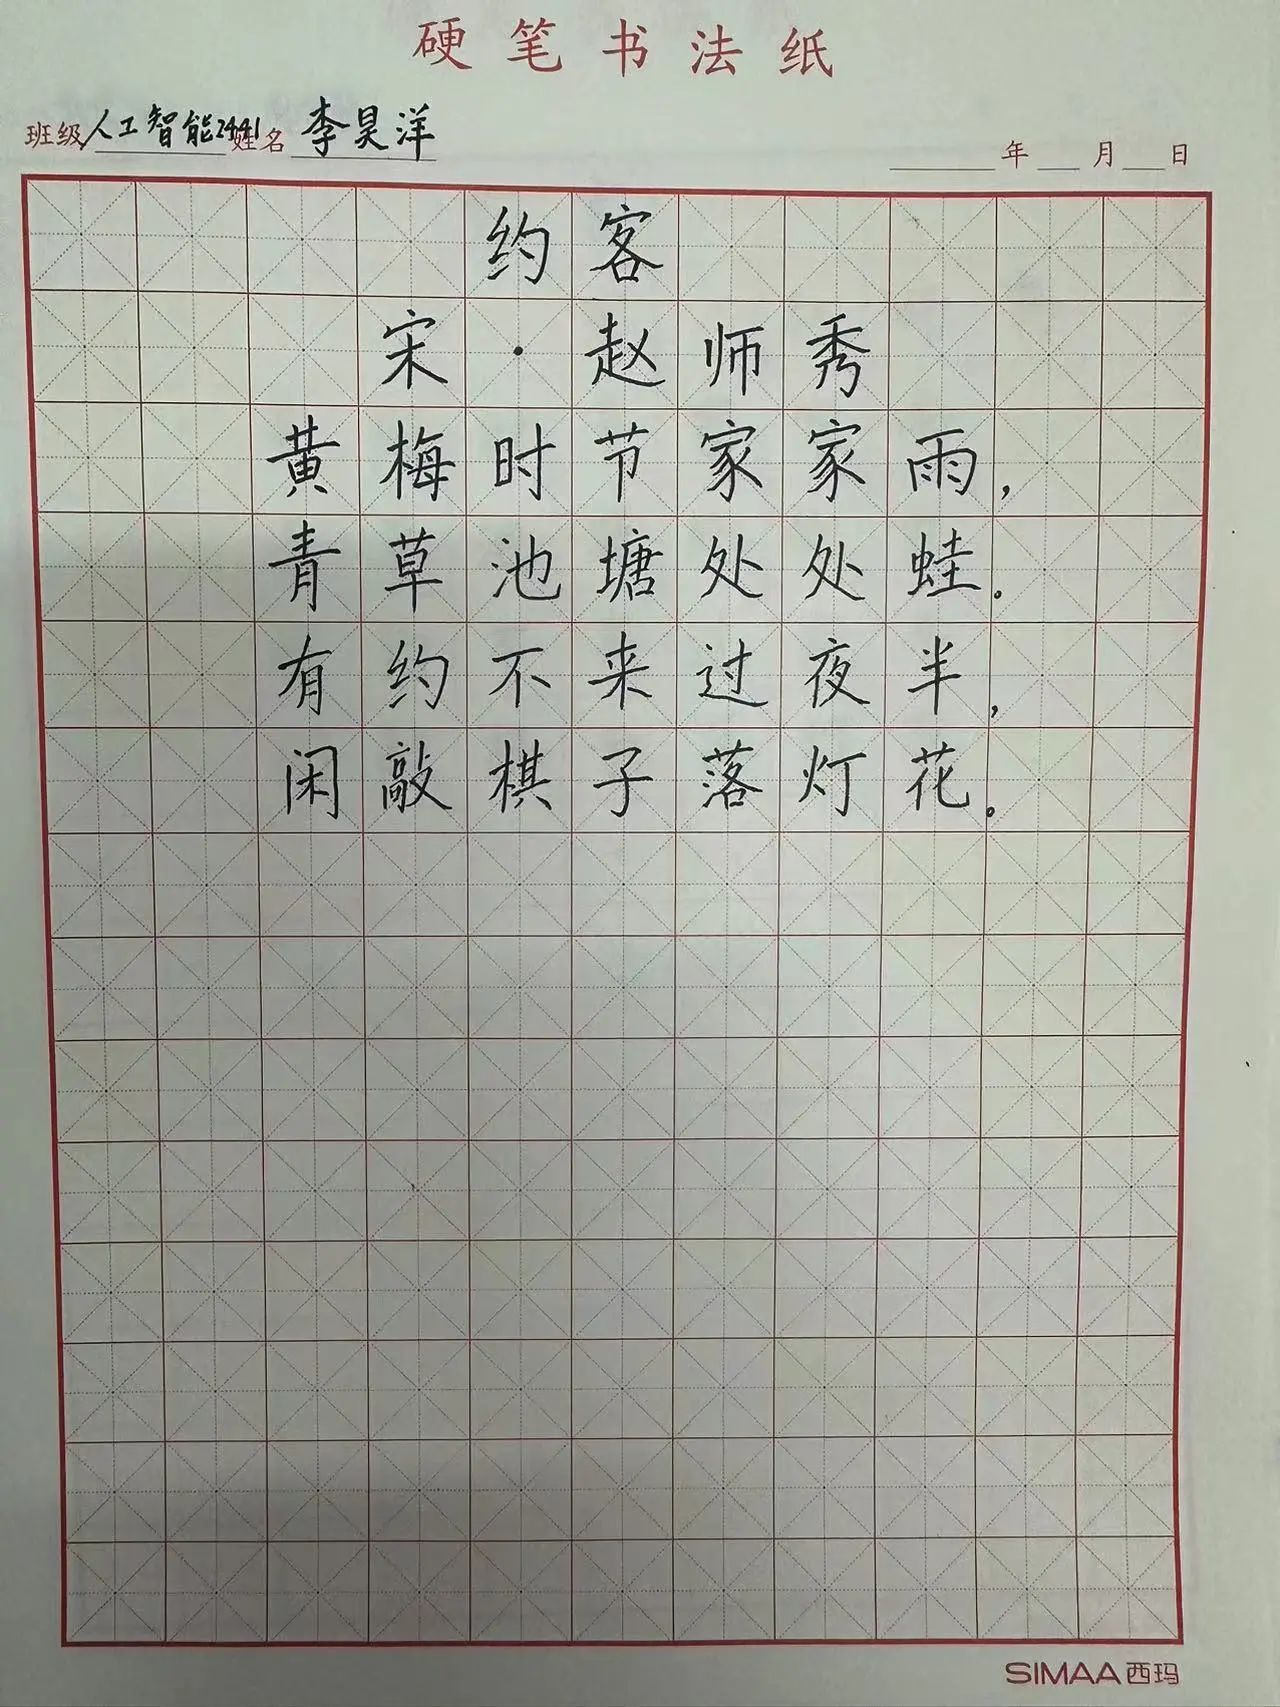 硬笔书法纸
班级人工智能2441姓名李昊洋 年 月 日
约客
宋·赵师秀
黄梅时节家家雨，
青草池塘处处蛙。
有约不来过夜半，
闲敲棋子落灯花。
SIMAA西玛